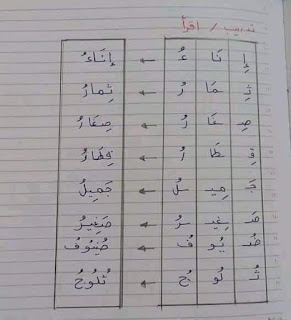 تدريب / اقرأ
إِ نَا ءُ ← إِنَاءُ
ثِ مَا رُ ← ثِمارُ
صِ غَا رُ ← صِغَارُ
قِ طَا رُ ← قِطَارُ
جَ مِيـ ـلُ ← جَمِيلُ
صَـ ـغِيـ ـرُ ← صَغِيرُ
ضُـ ـيُو فُ ← ضُيُوفُ
ثُـ ـلُو جُ ← ثُلُوجُ